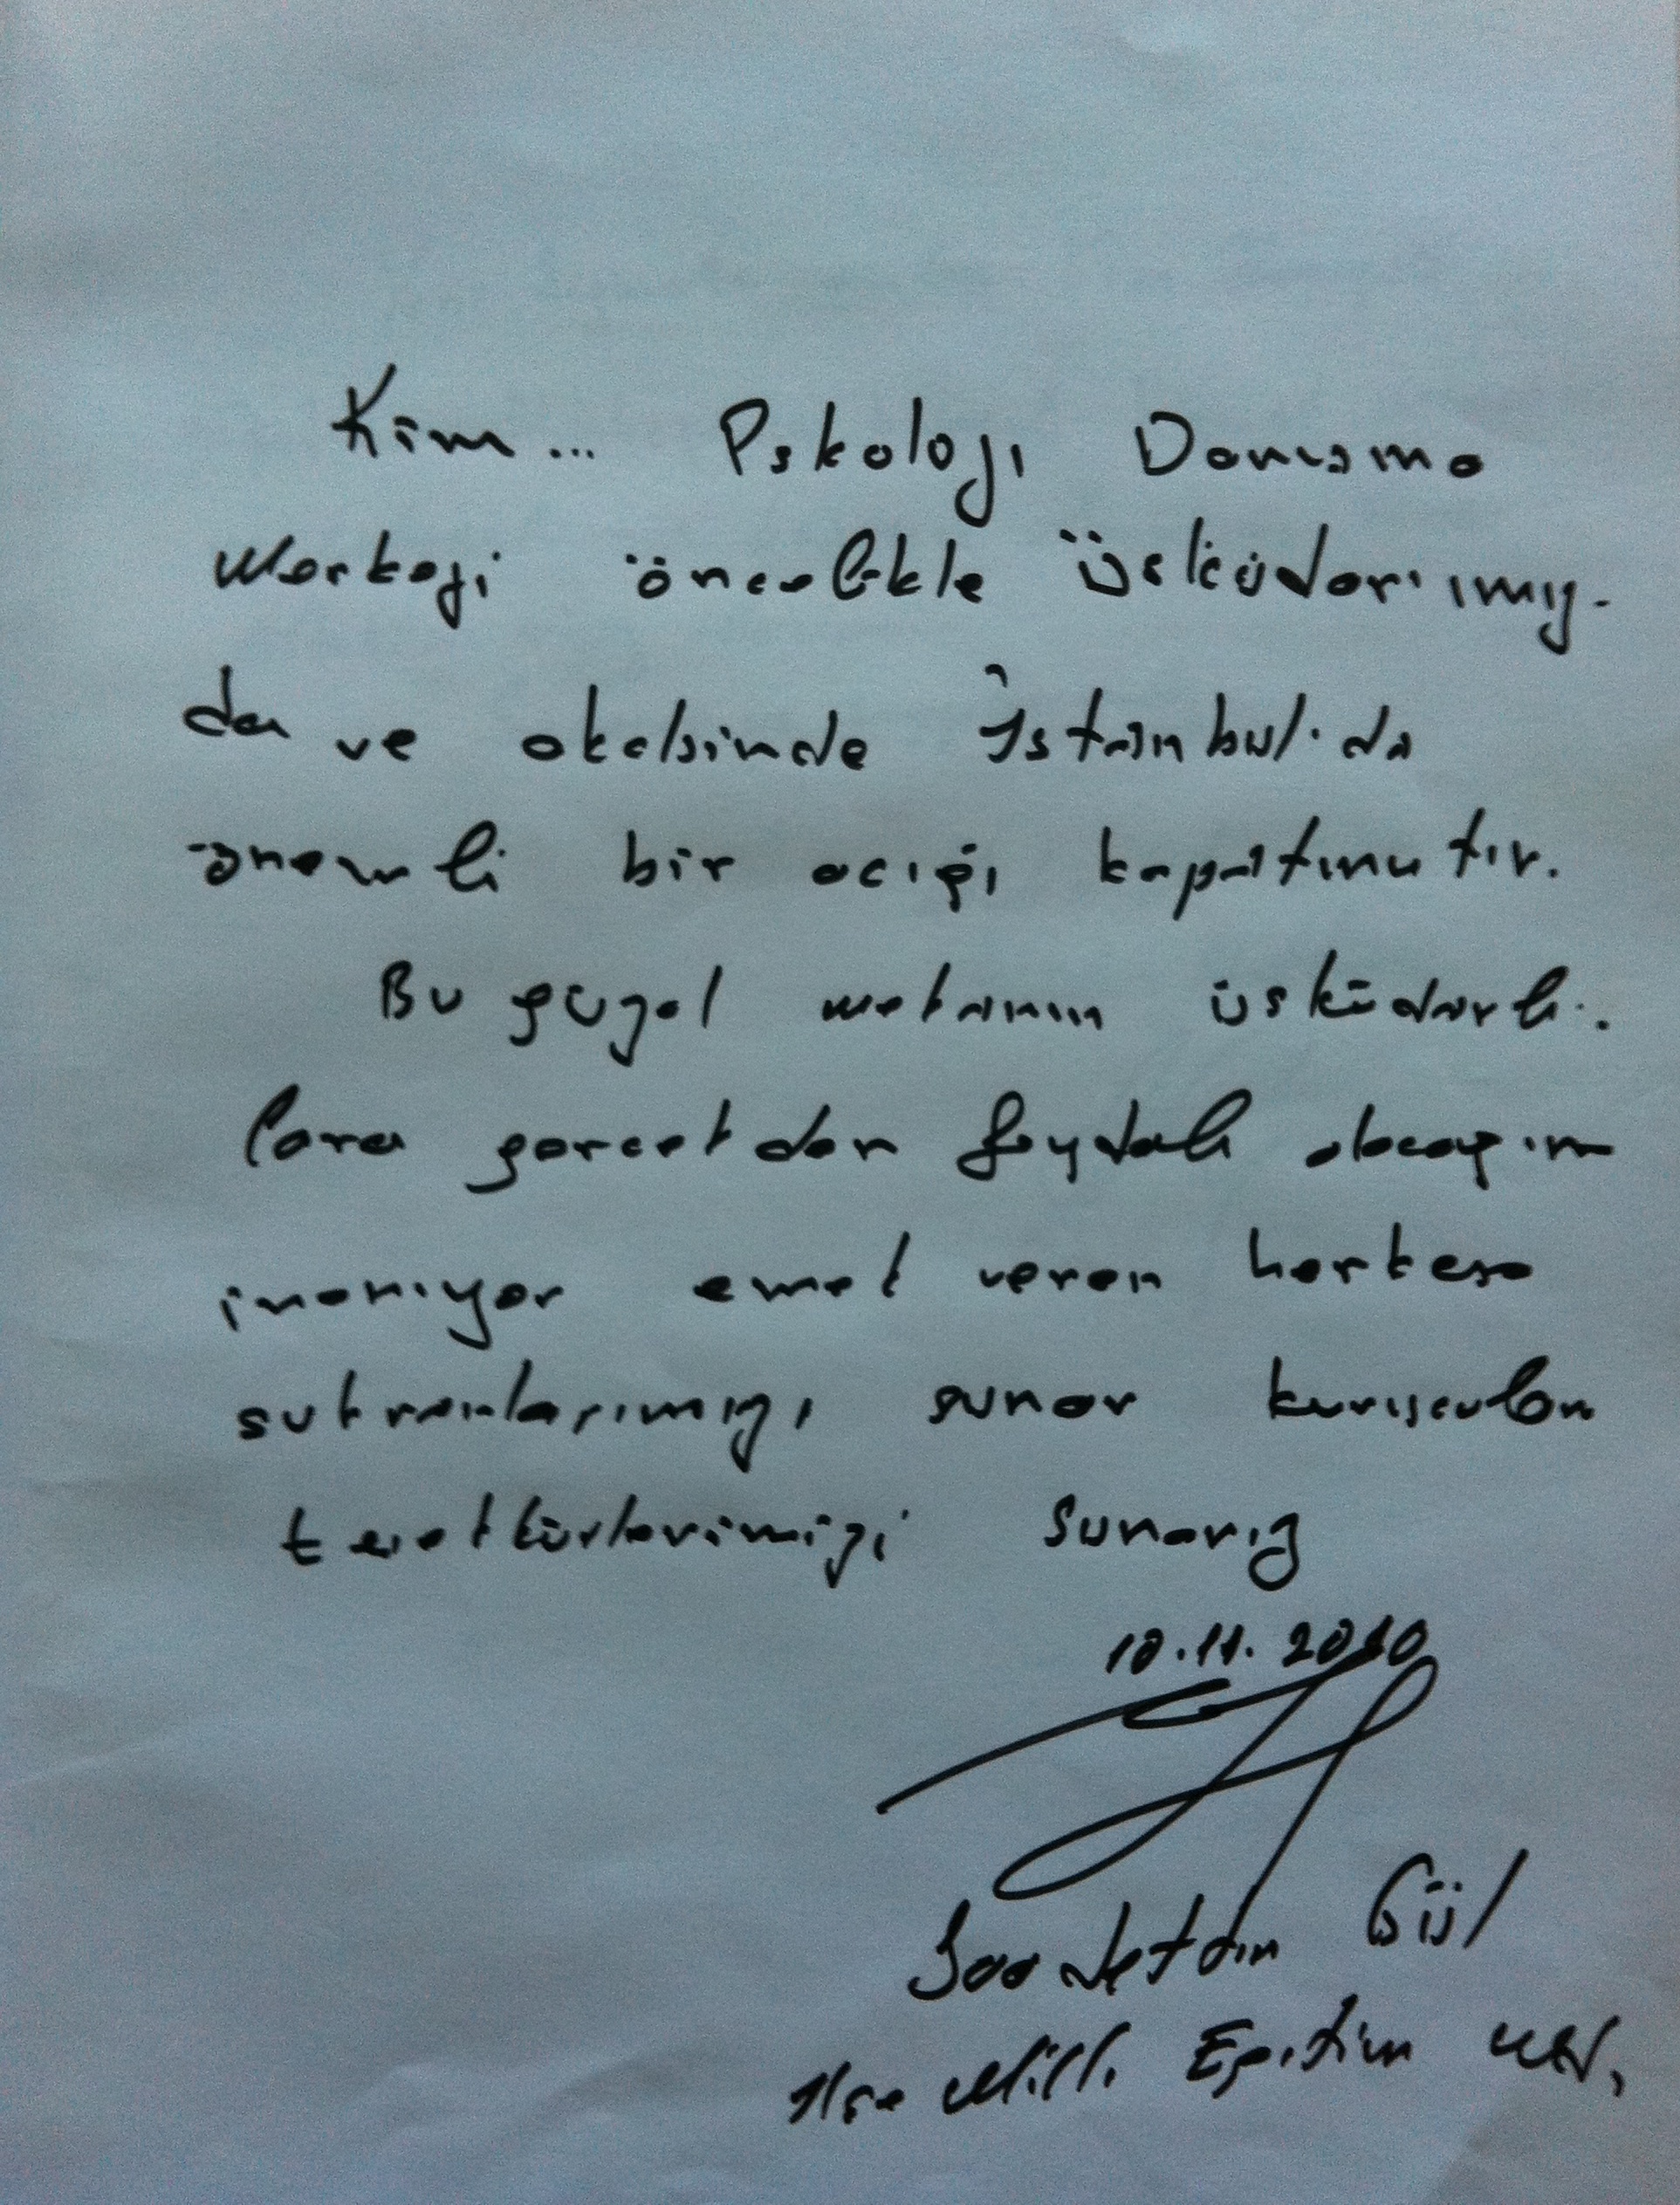 Kim... Pskoloji Danışma
Merkezi öncelikle Üsküdar'ımız-
da ve akabinde İstanbul'da
önemli bir açığı kapatmıştır.
Bu güzel mekanın üsküdarlı-
lara gerçekten faydalı olacağına
inanıyor emek veren herkese
şükranlarımızı sunar kurucuları
teşekkürlerimizi sunarız
10.11.2010
Saadettin Gül
İlçe Milli Eğitim Md.